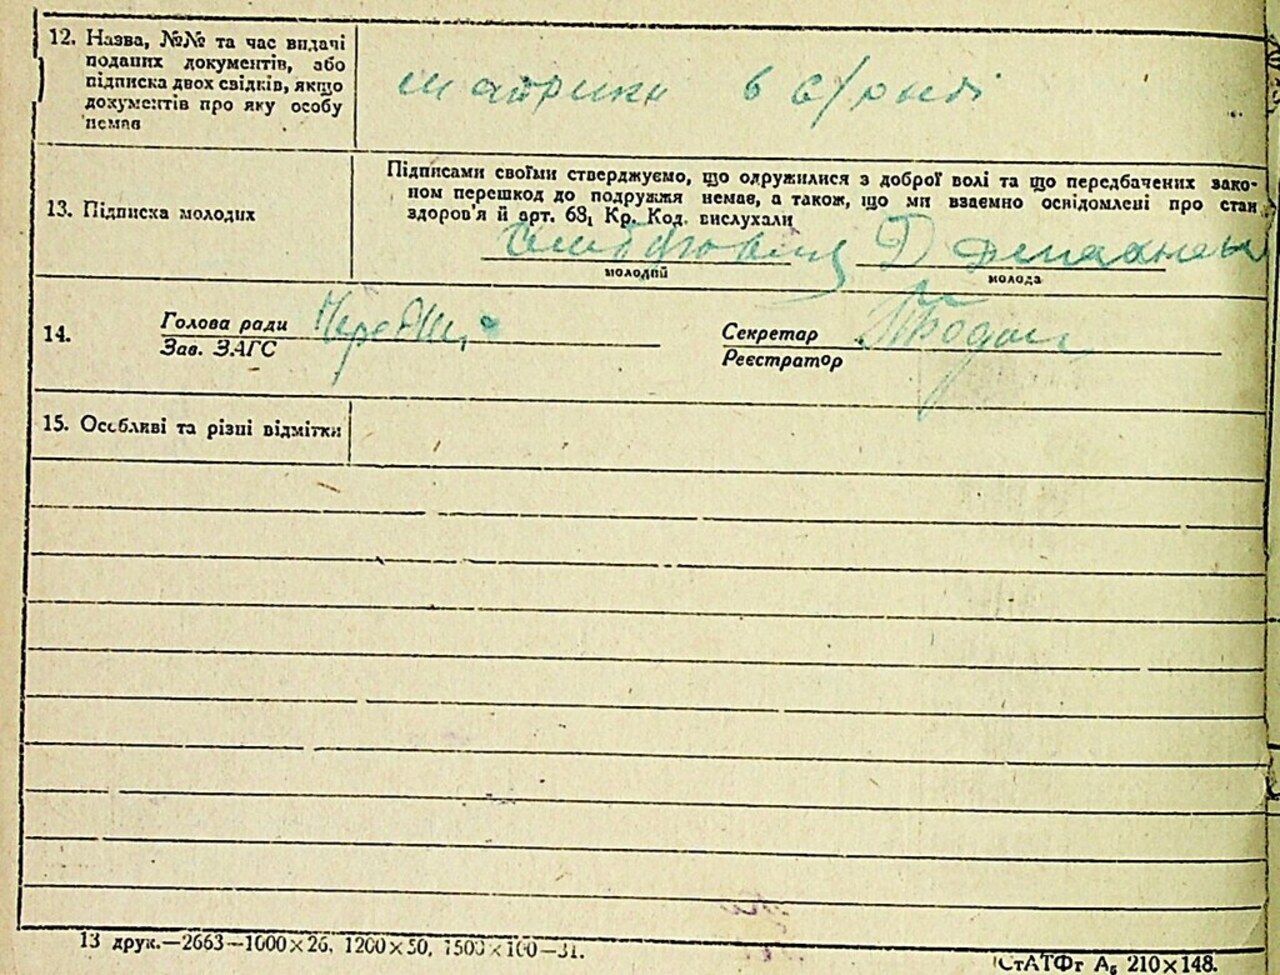 12. Назва, №№ та час видачі
поданих документів, або
підписка двох свідків, якщо
документів про яку особу
немає
матрики в с/раді
13. Підписка молодих
Підписами своїми стверджуємо, що одружилися з доброї волі та що передбачених зако-
ном перешкод до подружжя немає, а також, що ми взаємно освідомлені про стан
здоров'я й арт. 68₁ Кр. Код. вислухали
молодий
молода
14.
Голова ради
Зав. ЗАГС
Секретар
Реєстратор
15. Особливі та різні відмітки
13 друк.—2663—1000×26, 1200×50, 1500×100—31.
СтАТФг А₅ 210×148.